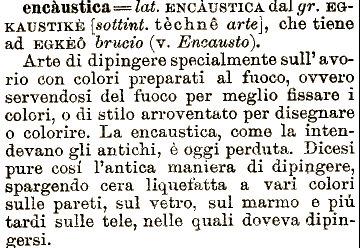 encàustica = lat. ENCÀUSTICA dal gr. EG-
KAUSTIKÈ [sottint. tèchnê arte], che tiene
ad EGKÈÔ brucio (v. Encausto).
Arte di dipingere specialmente sull'avo-
rio con colori preparati al fuoco, ovvero
servendosi del fuoco per meglio fissare i
colori, o di stilo arroventato per disegnare
o colorire. La encaustica, come la inten-
devano gli antichi, è oggi perduta. Dicesi
pure cosí l'antica maniera di dipingere,
spargendo cera liquefatta a vari colori
sulle pareti, sul vetro, sul marmo e piú
tardi sulle tele, nelle quali doveva dipin-
gersi.